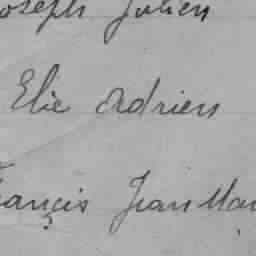 oseph Julien
Elie Adrien
rançis Jean Mar